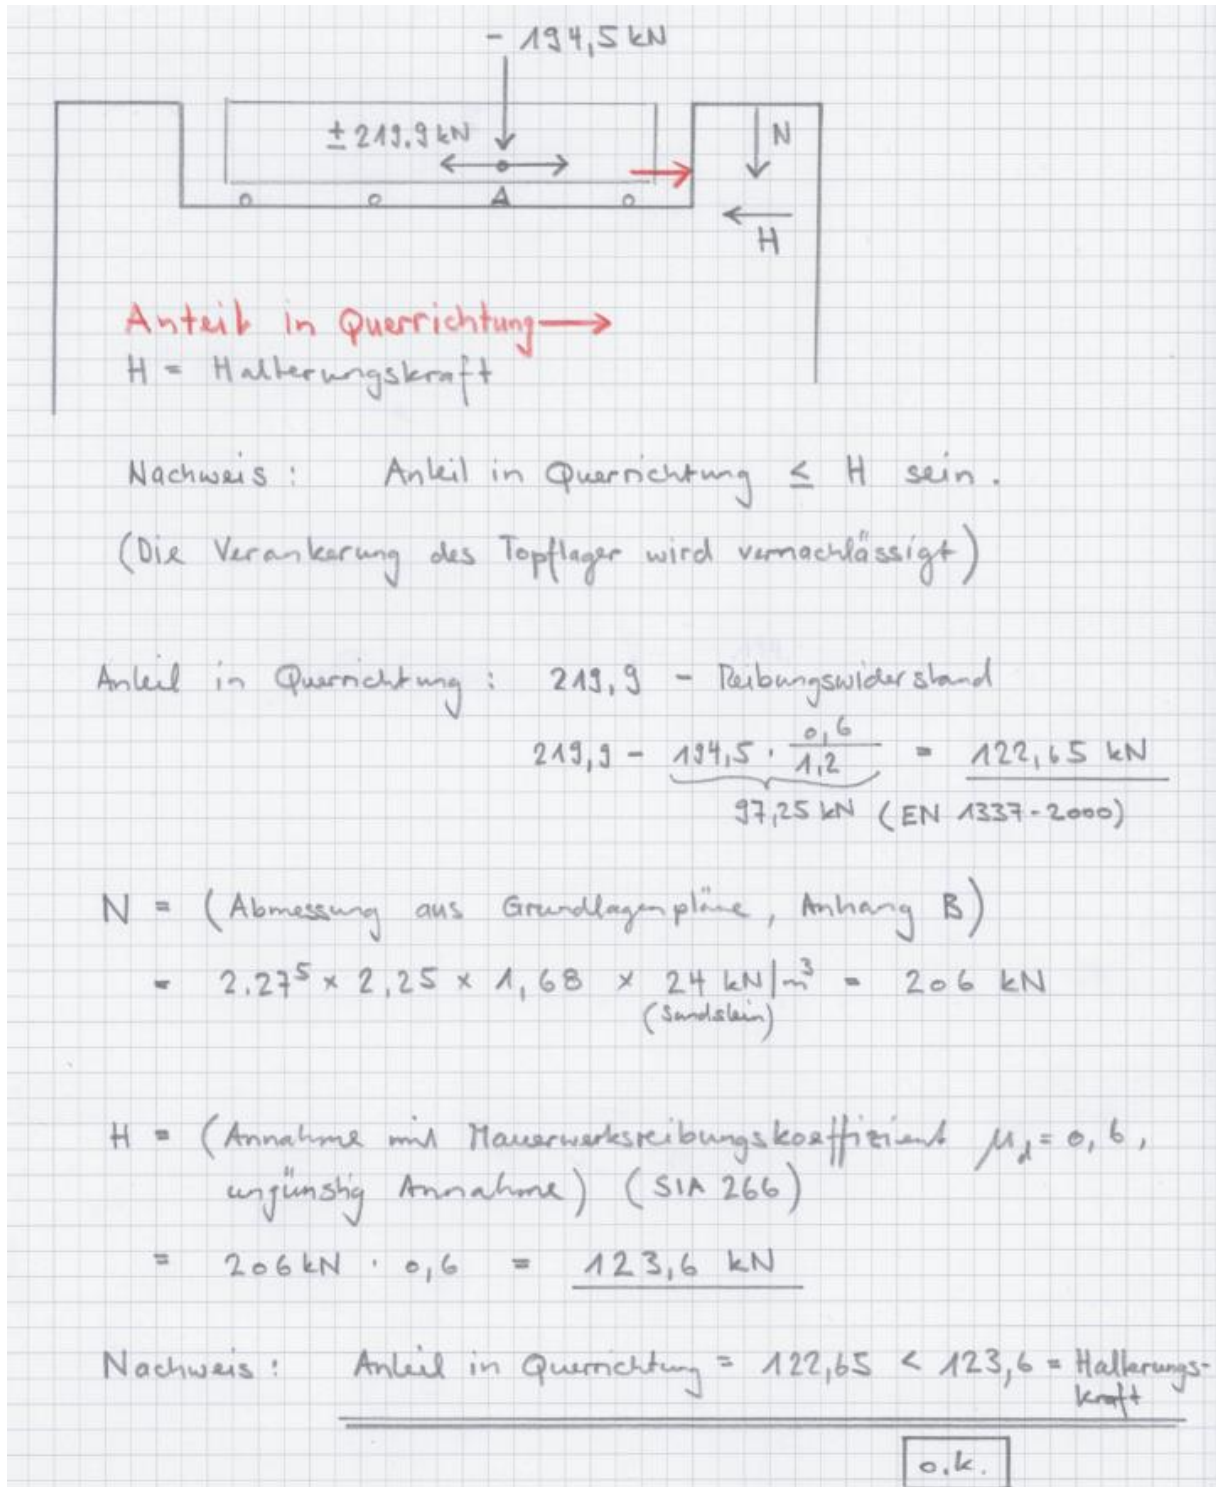 - 194,5 kN
± 219.9 kN
N
A
H
Anteil in Querrichtung →
H = Halterungskraft
Nachweis: Anteil in Querrichtung ≤ H sein.
(Die Verankerung des Topflager wird vernachlässigt)
Anteil in Querrichtung: 219,9 - Reibungswiderstand
219,9 - 194,5 · 0,6/1,2 = 122,65 kN
97,25 kN (EN 1337-2000)
N = (Abmessung aus Grundlagenpläne, Anhang B)
= 2.27⁵ × 2,25 × 1,68 × 24 kN/m³ = 206 kN
(Sandstein)
H = (Annahme mit Mauerwerksreibungskoeffizient μd = 0,6,
ungünstig Annahme) (SIA 266)
= 206 kN · 0,6 = 123,6 kN
Nachweis: Anteil in Querrichtung = 122,65 < 123,6 = Halterungs-
kraft
o.k.